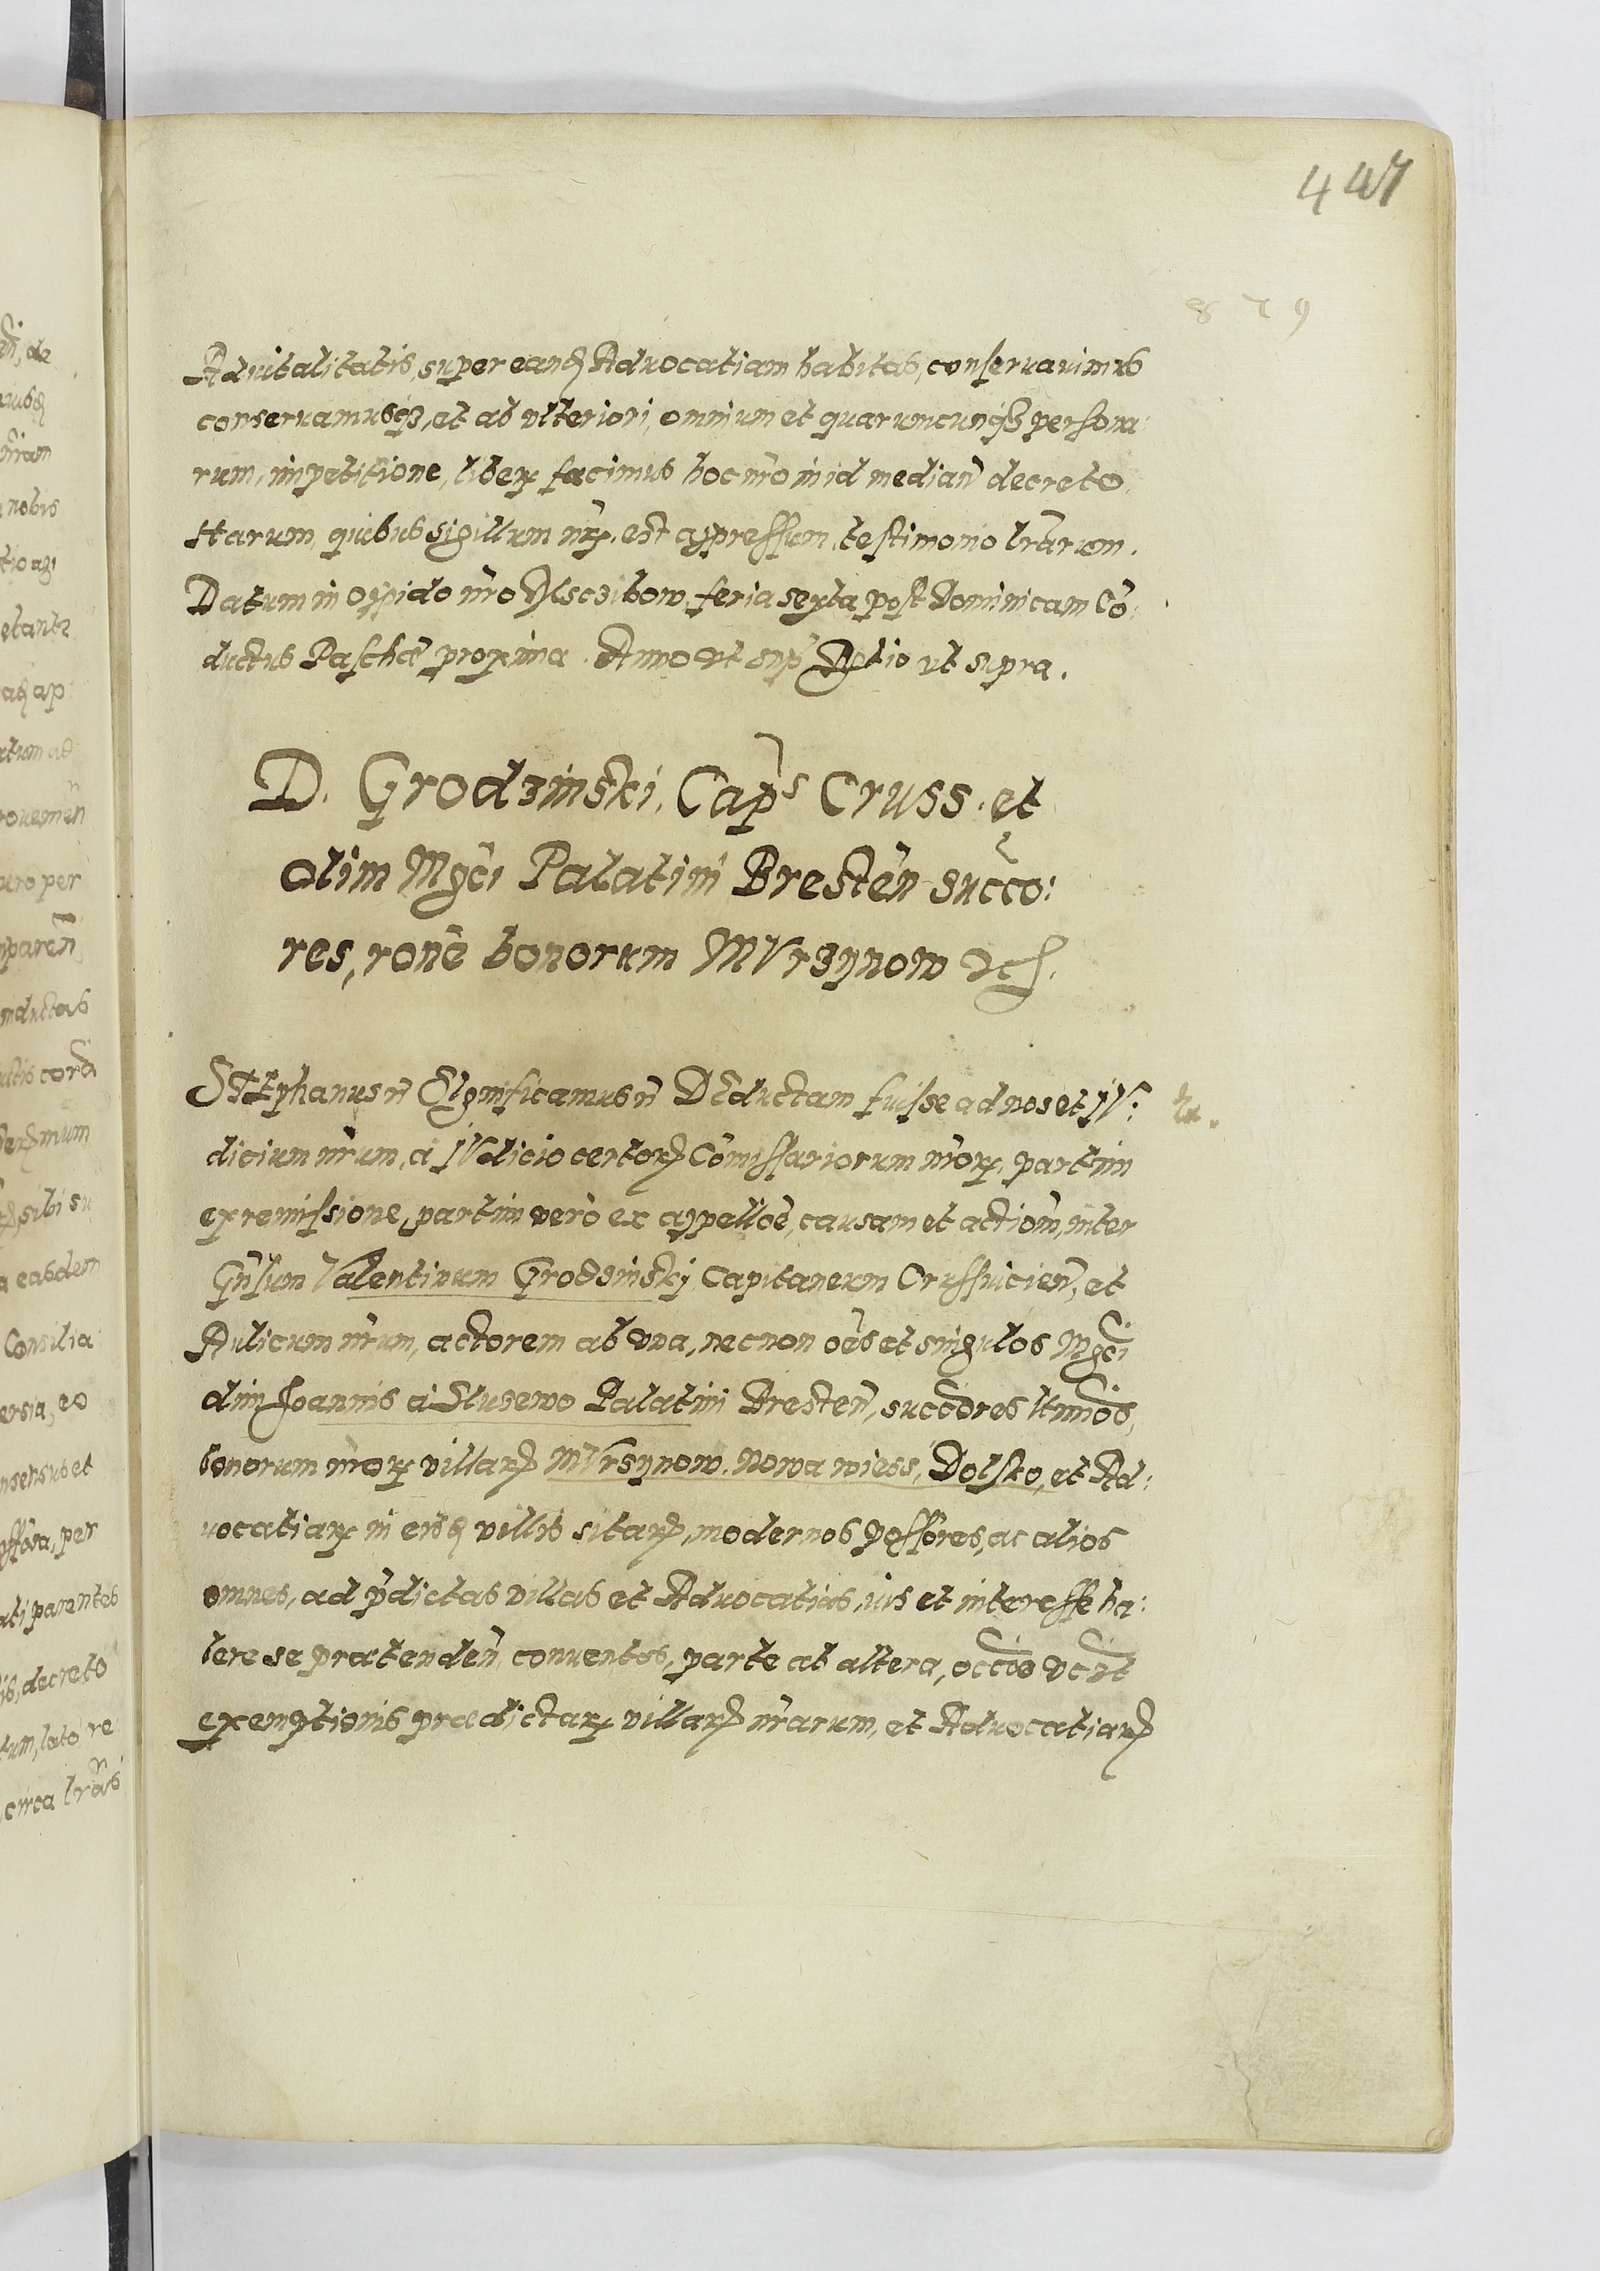 447
879
Aduitalitatis, super eand Aduocatiam habitas, conseruauimus
conseruamusqz, et ab vlteriori, omnium et quarumcunqz persona:
rum, impetitione, liber facimus hoc nro in id median decreto.
Harum, quibus sigillum nr, est appressum, testimonio lrarum.
Datum in Oppido nro Msczibow, feria sexta post Dominicam Co:
ductus Paschae proxima. Anno vt sup Rtio vt supra.
D. Grodzinski, Caps Cruss. et
olim Mgci Palatini Bresten succo:
res, rone bonorum MVrzynow etc.
STephanus n Significamus n Deductam fuisse ad nos et IV:
dicium nrum, a IVdicio certor Comissariorum nror, partim
ex remissione, partim vero ex appelloe, causam et actiom, inter
Gnsum Valentinum Grodzinskj Capitaneum Crussuicien, et
Aulicum nrum, actorem ab vna, necnon oes et singulos Mgci
dim Joannis a Sluzewo Palatini Bresten, succores ltimos,
bonorum nror villar MVrzynow, Nowa wiess, Dolsko, et Ad:
uocatiar in eisd villis sitar, modernos possores, ac alios
omnes, ad pdictas villas et Aduocatias, ius et interesse ha:
bere se praetenden conuentos, parte ab altera, occoe
exemptionis praedictar villar nrarum, et Aduocatiar